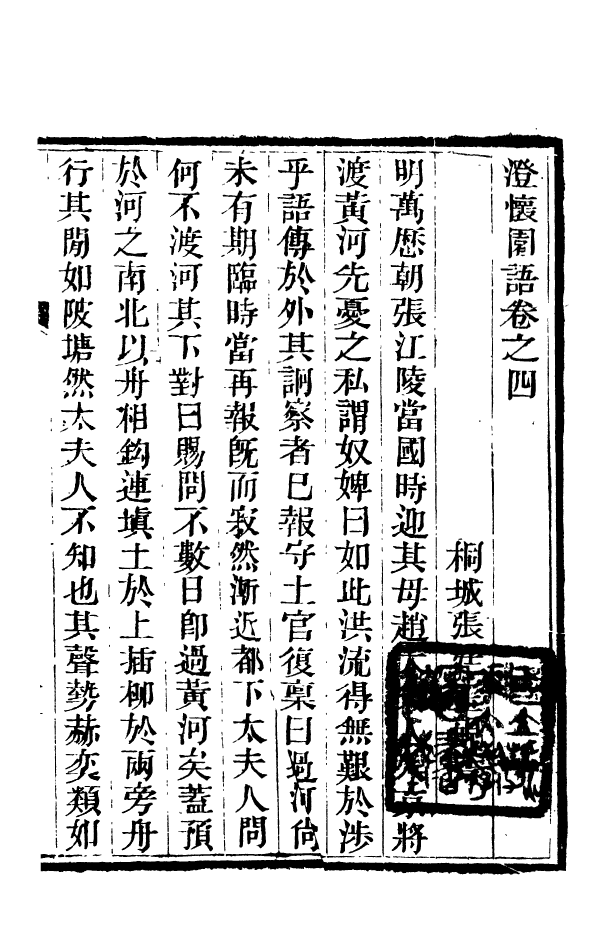 澄懷園語卷之四
桐城張
明萬歷朝張江陵當國時迎其母趙太夫人入京將
渡黃河先憂之私謂奴婢曰如此洪流得無艱於涉
乎語傳於外其詗察者已報守土官復稟曰過河尙
未有期臨時當再報旣而寂然漸近都下太夫人問
何不渡河其下對曰賜問不數日卽過黃河矣蓋預
於河之南北以舟相鈎連塡土於上插柳於兩旁舟
行其閒如陂塘然太夫人不知也其聲勢赫奕類如